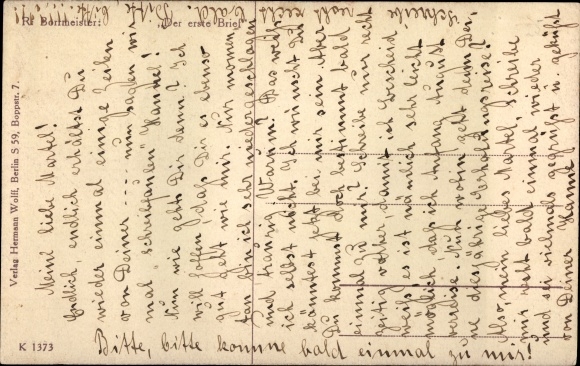 R. Borrmeister: „Der erste Brief"
Verlag Hermann Wolff, Berlin S 59, Boppstr. 7.
K 1373
Meine liebe Martel!
Endlich endlich erhältst Du
wieder einmal einige Zeilen
von Deiner ... nun sagen wir
mal „schreibfaulen" Hannel!
Nun wie gehts Dir denn? Ich
will hoffen, daß Dir es ebenso
gut geht wie mir. Nur momen
tan bin ich sehr niedergeschlagen
und traurig. Warum? Das weiß
ich selbst nicht. Ich wünscht Du
könntest jetzt bei mir sein. Aber
Du kommst doch bestimmt bald
einmal zu mir? Schreibe mir recht
zeitig vorher damit ich Bescheid
weiß, es ist nämlich sehr leicht
möglich, daß ich Anfang August
verreise. Nun wohin geht denn Dei-
ne diesjährige Erholungsreise?
Also, mein liebes Martel, schreibe
mir recht bald einmal wieder
und sei vielmals gegrüßt u. geküßt
von Deiner Hanne
Bitte, bitte komme bald einmal zu mir!
schreibe recht recht bald. Bitte, bitte